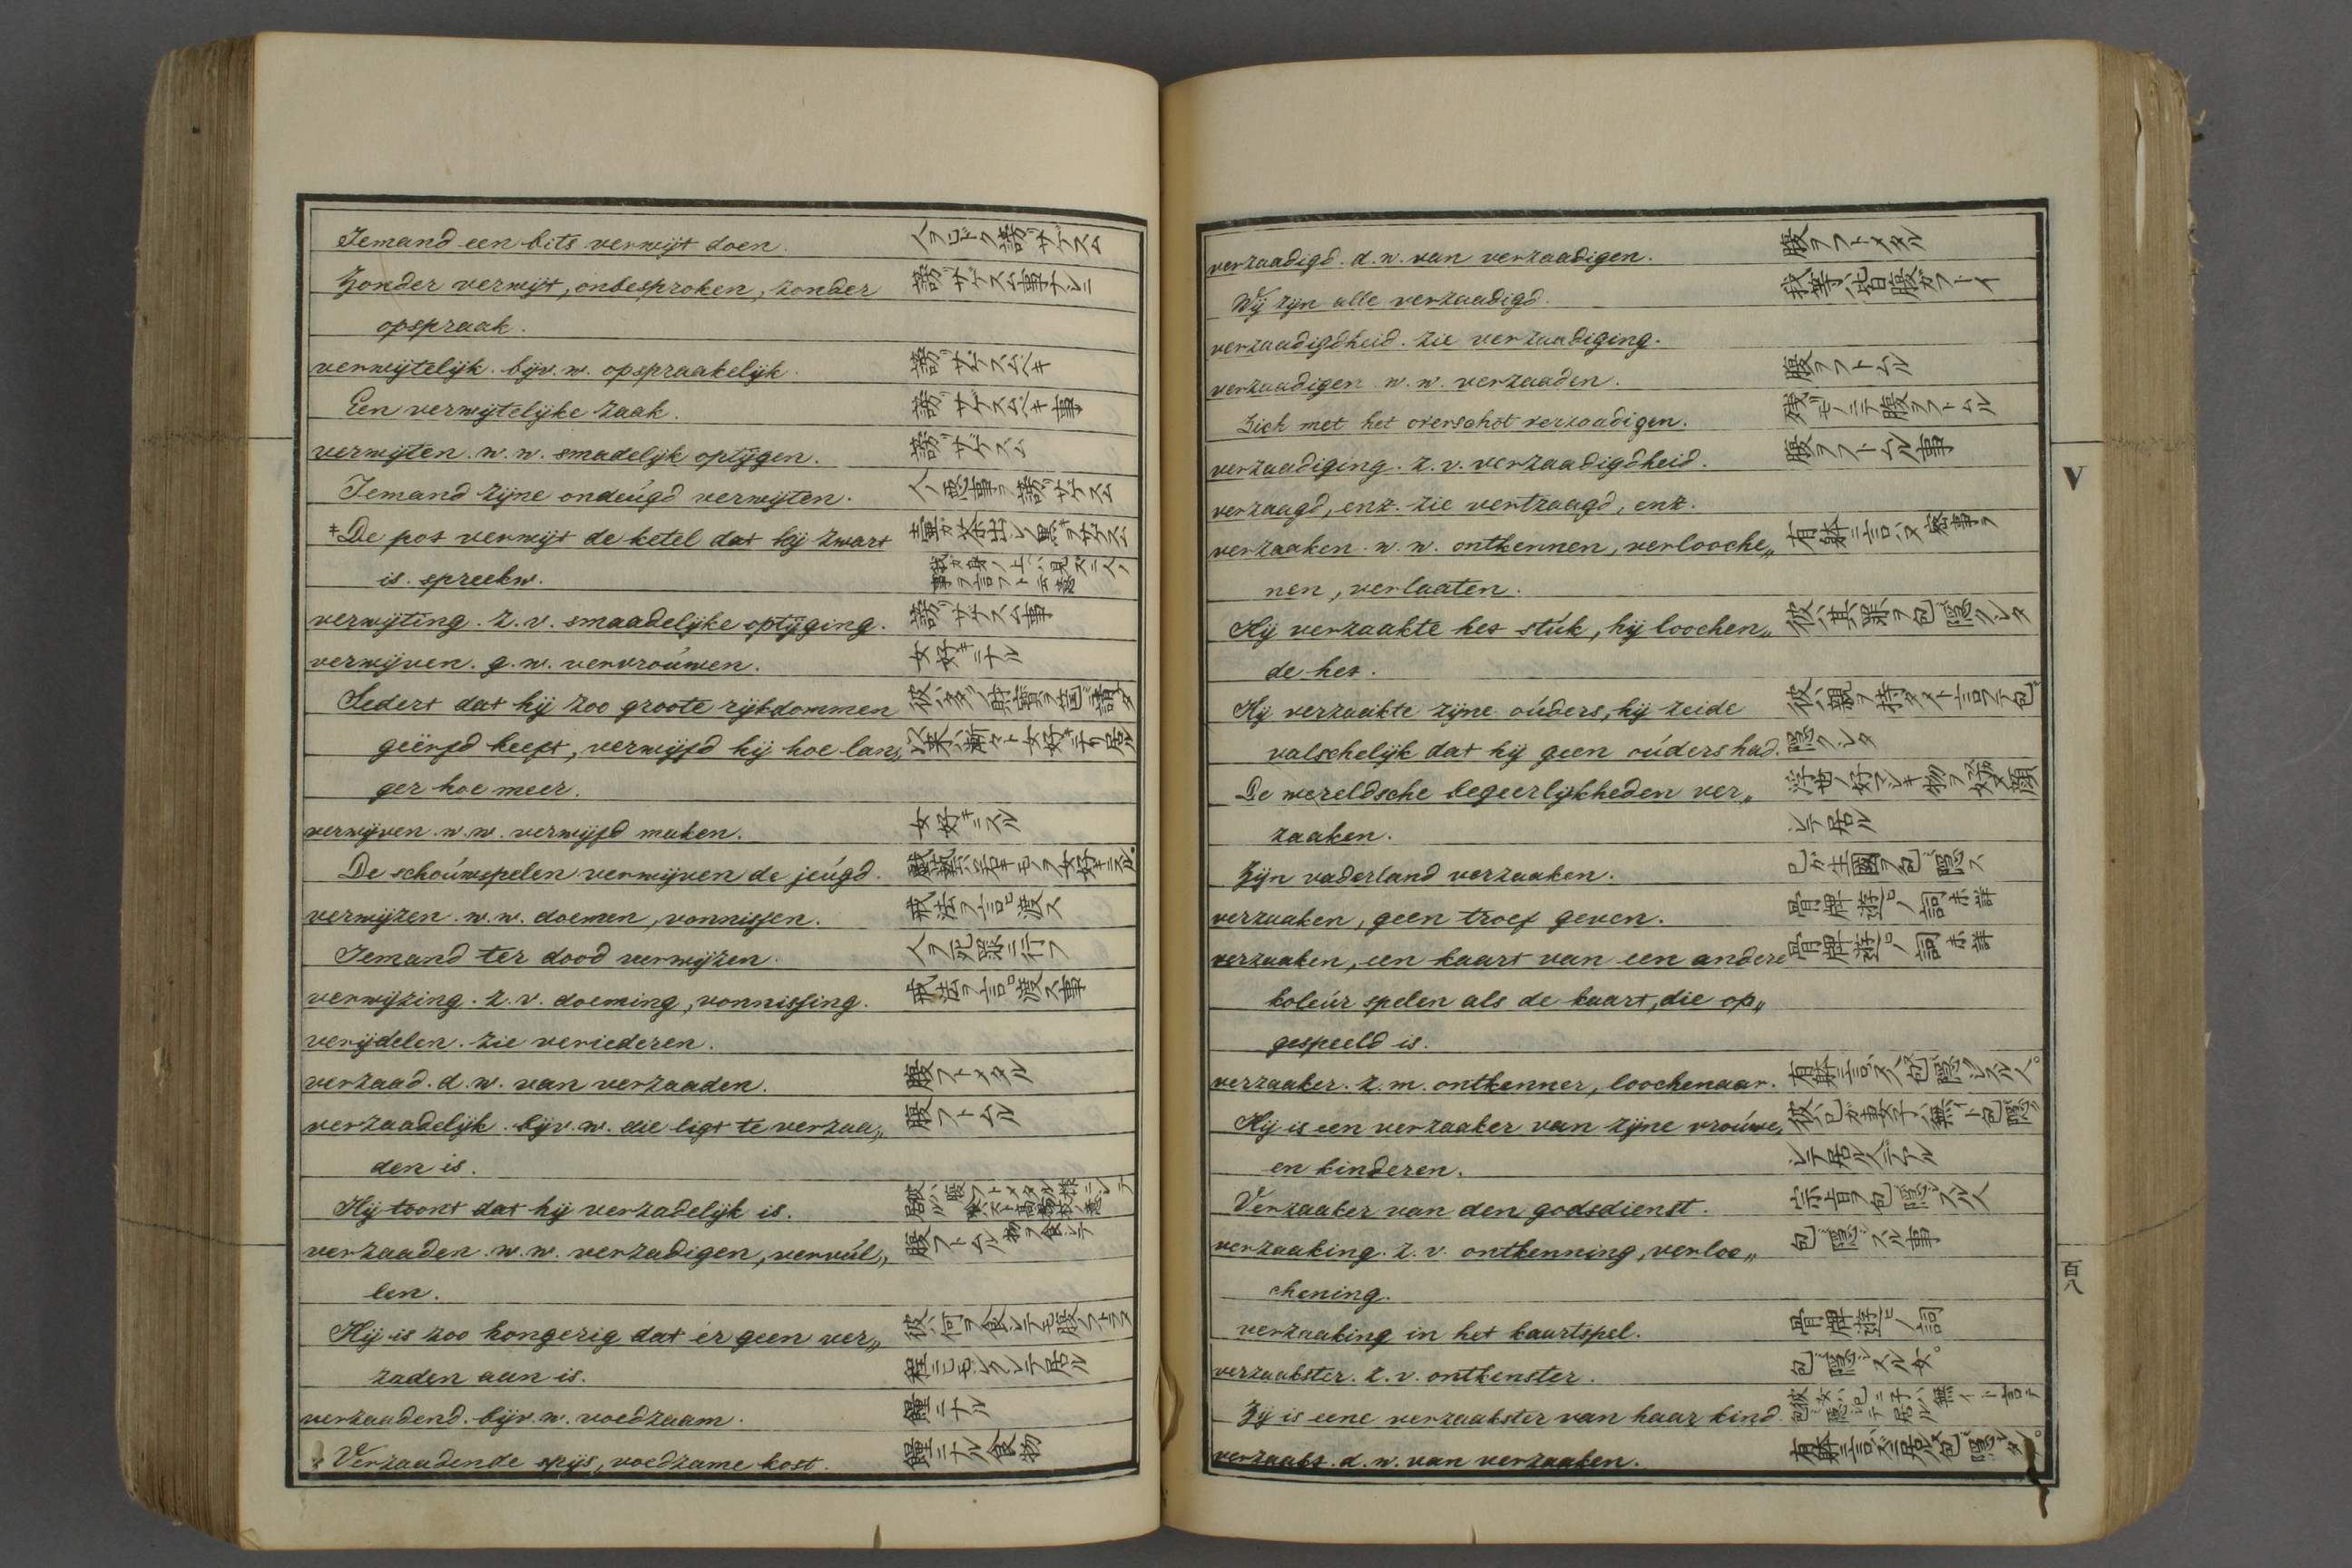 Iemand een bits verwijt doen. 人ヲヒドク謗サゲスム
Zonder verwijt, onbesproken, zonder 謗サゲスム事ナシニ
opspraak.
verwijtelijk. bijv. w. opspraakelijk. 謗サゲスムベキ
Een verwijtelijke zaak. 謗サゲスムベキ事
verwijten. w. w. smadelijk optijgen. 謗サゲスム
Iemand zijne ondeúgd verwijten. 人ノ悪事ヲ謗サゲスム
‡De pot verwijt de ketel dat hij zwart
is. spreekw.
verwijting. z. v. smaadelijke optijging. 謗サゲスム事
verwijven. g. w. vervroúwen. 女好キニナル
Sedert dat hij zoo groote rijkdommen
geërfd heeft, verwijfd hij hoe lan„
ger hoe meer.
verwijven. w. w. verwijfd maken. 女好キニスル
De schoúwspelen verwijven de jeúgd.
verwijzen. w. w. doemen, vonnissen. 裁法ヲ言渡ス
Iemand ter dood verwijzen. 人ヲ死罪ニ行フ
verwijzing. z. v. doeming, vonnissing. 裁法ヲ言渡ス事
verijdelen. zie veriederen.
verzaad. d. w. van verzaaden. 腹フトメタル
verzaadelijk. bijv. w. die ligt te verzaa„ 腹フトムル
den is.
Hij toont dat hij verzadelijk is.
verzaaden. w. w. verzadigen, vervúl„ 腹フトムル 物ヲ食シテ
len.
Hij is zoo hongerig dat er geen ver„ 彼ハ何ヲ食シテモ腹フトラヌ
zaden aan is.
verzaadend. bijv. w. voedzaam. 糧ニナル
Verzaadende spijs, voedzame kost. 糧ニナル食物
verzaadigd. d. w. van verzaadigen. 腹ヲフトメタル
Wij zijn alle verzaadigd. 我等ハ皆腹ガフトイ
verzaadigdheid. zie verzaadiging.
verzaadigen. w. w. verzaaden. 腹ヲフトムル
Zich met het overschot verzaadigen. 残モノニテ腹ヲフトムル
verzaadiging. z. v. verzaadigdheid. 腹ヲフトムル事
verzaagd, enz. zie vertzaagd, enz.
verzaaken. w. w. ontkennen, verlooche„
nen, verlaaten.
Hij verzaakte het stúk, hij loochen„ 彼ハ其罪ヲ包隠クシタ
de het.
Hij verzaakte zijne oúders, hij zeide 彼ハ親ヲ持タヌト言フテ包
valschelijk dat hij geen oúders had. 隠クシタ
De wereldsche begeerlijkheden ver„
zaaken. シテ居ル
Zijn vaderland verzaaken. 己ガ生國ヲ包隠ス
verzaaken, geen troef geven. 骨牌遊ビノ詞未詳
verzaaken, een kaart van een andere 骨牌遊ビノ詞未詳
koleúr spelen als de kaart, die op„
gespeeld is.
verzaaker. z. m. ontkenner, loochenaar.
Hij is een verzaaker van zijne vroúwe, 彼ハ己ガ妻子ハ無イト包隠
en kinderen. シテ居ル人デアル
Verzaaker van den godsdienst. 宗旨ヲ包隠シスル人
verzaaking. z. v. ontkenning, verloo„ 包隠シスル事
chening.
verzaaking in het kaartspel. 骨牌遊ビノ詞
verzaakster. z. v. ontkenster. 包隠シスル女。
Zij is eene verzaakster van haar kind.
verzaakt. d. w. van verzaaken.
V
百八